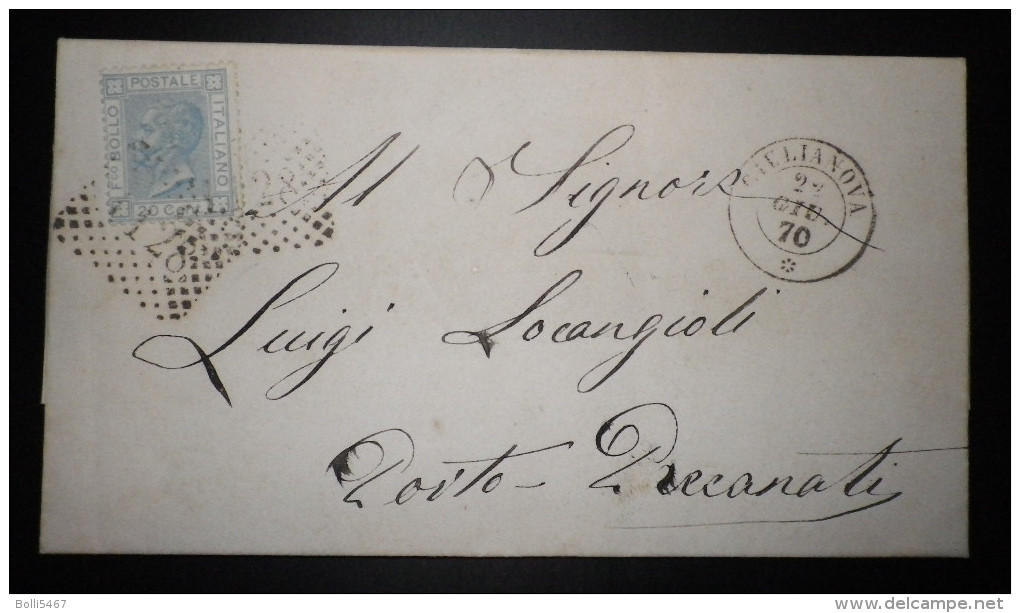 POSTALE
F.CO BOLLO
ITALIANO
20 Cent
Al Signor
GIULIANOVA
22
GIU.
70
Luigi Locangioli
Porto Reccanati
Bolli5467
www.delcampe.net